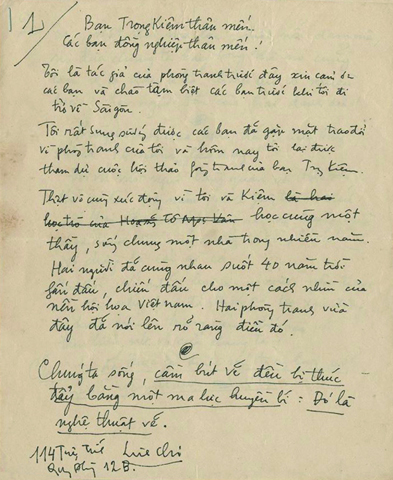 1
Bạn Trọng Kiệm thân mến.
Các bạn đồng nghiệp thân mến!
Tôi là tác giả của phòng tranh trước đây xin cảm ơn
các bạn và chào tạm biệt các bạn trước khi tôi đi
trở về Sài gòn.
Tôi rất sung sướng được các bạn đã gặp mặt trao đổi
về phòng tranh của tôi và hôm nay tôi lại được
tham dự cuộc hội thảo phòng tranh của bạn Trọng Kiệm.
Thật vô cùng xúc động vì tôi và Kiệm là hai
học trò của Hoàng Tô Ngọc Vân học cùng một
thầy, sống chung một nhà trong nhiều năm.
Hai người đã cùng nhau suốt 40 năm trời
phấn đấu, chiến đấu cho một cách nhìn của
nền hội họa Việt nam. Hai phòng tranh vừa
đây đã nói lên rõ ràng điều đó.
Chúng ta sống, cầm bút vẽ đều bị thúc
đẩy bằng một ma lực huyền bí: Đó là
nghệ thuật vẽ.
114
12B.